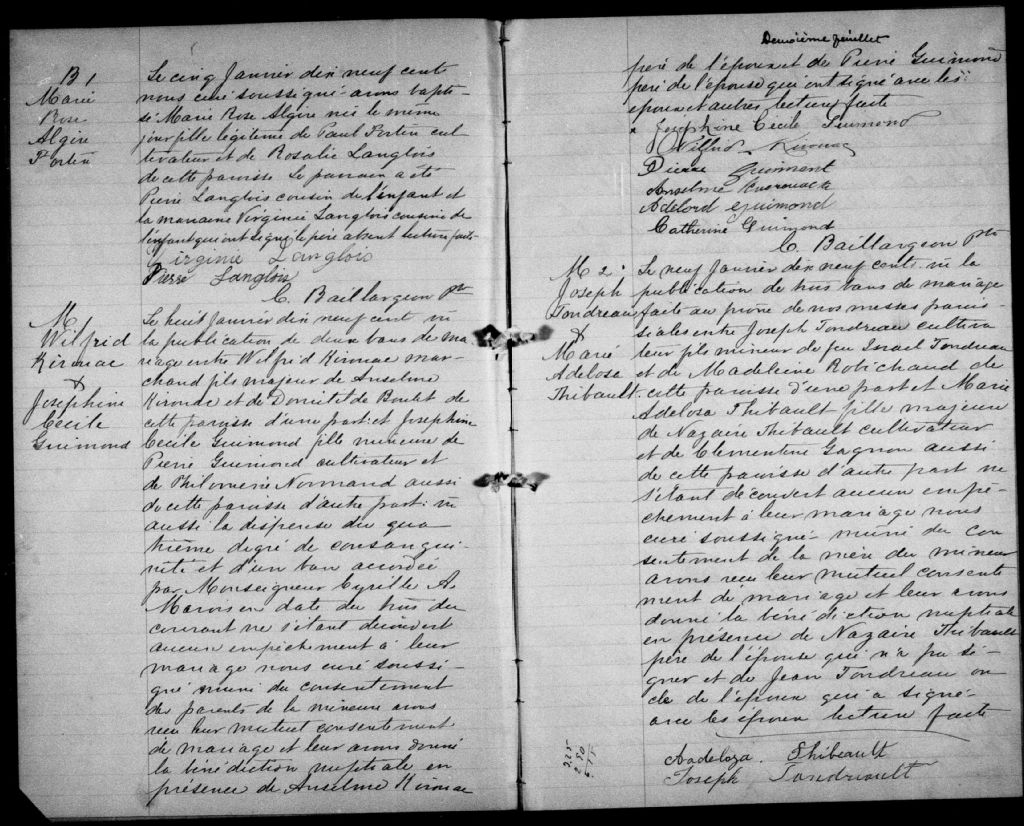 B 1
Marie
Rose
Algire
Fortin
Le cinq Janvier dix neuf cents
nous curé soussigné avons bapti-
sé Marie Rose Algire née le même
jour fille légitime de Paul Fortin cul
tivateur et de Rosalie Langlois
de cette paroisse. Le parrain a été
Pierre Langlois cousin de l'enfant et
la marraine Virginie Langlois cousine de
l'enfant qui ont signé, le père absent lecture faite
Virginie Langlois
Pierre Langlois
C. Baillargeon Ptr
M. 1
Wilfrid
Kirouac
&
Josephine
Cécile
Guimond
Le huit Janvier dix neuf cent vu
la publication de deux bans de ma
riage entre Wilfrid Kirouac mar-
chand fils majeur de Anselme
Kirouac et de Domitilde Boulet de
cette paroisse d'une part et Josephine
Cécile Guimond fille mineure de
Pierre Guimond cultivateur et
de Philomène Normand aussi
de cette paroisse d'autre part: vu
aussi la dispense du qua
trième degré de consangui-
nité et d'un ban accordée
par Monseigneur Cyrille A.
Marois en date du trois du
courant ne s'étant découvert
aucun empêchement à leur
mariage nous curé soussi-
gné muni du consentement
des parents de la mineure avons
reçu leur mutuel consentement
de mariage et leur avons donné
la bénédiction nuptiale en
présence de Anselme Kirouac
Deuxième feuillet
père de l'époux et de Pierre Guimond
père de l'épouse qui ont signé avec les
époux et autres, lecture faite
x Joséphine Cécile Guimond
Wilfrid Kirouac
Pierre Guimont
Anselme Kuerouack
Adelord Guimond
Catherine Guimond
C. Baillargeon Ptr
M 2
Joseph
Tondreau
&
Marie
Adelosa
Thibault
Le neuf Janvier dix neuf cents vu la
publication de trois bans de mariage
faite au prône de nos messes parois
siales entre Joseph Tondreau cultiva
teur fils mineur de feu Israel Tondreau
et de Madeleine Robichaud de
cette paroisse d'une part et Marie
Adelosa Thibault fille majeure
de Nazaire Thibault cultivateur
et de Clementine Gagnon aussi
de cette paroisse d'autre part ne
s'étant découvert aucun empê-
chement à leur mariage nous
curé soussigné muni du con
sentement de la mère du mineur
avons reçu leur mutuel consente
ment de mariage et leur avons
donné la bénédiction nuptiale
en présence de Nazaire Thibault
père de l'épouse qui n'a pu si-
gner et de Jean Tondreau on
cle de l'époux qui a signé
avec les époux lecture faite
Aadeloza Thibeault
Joseph Tondreault